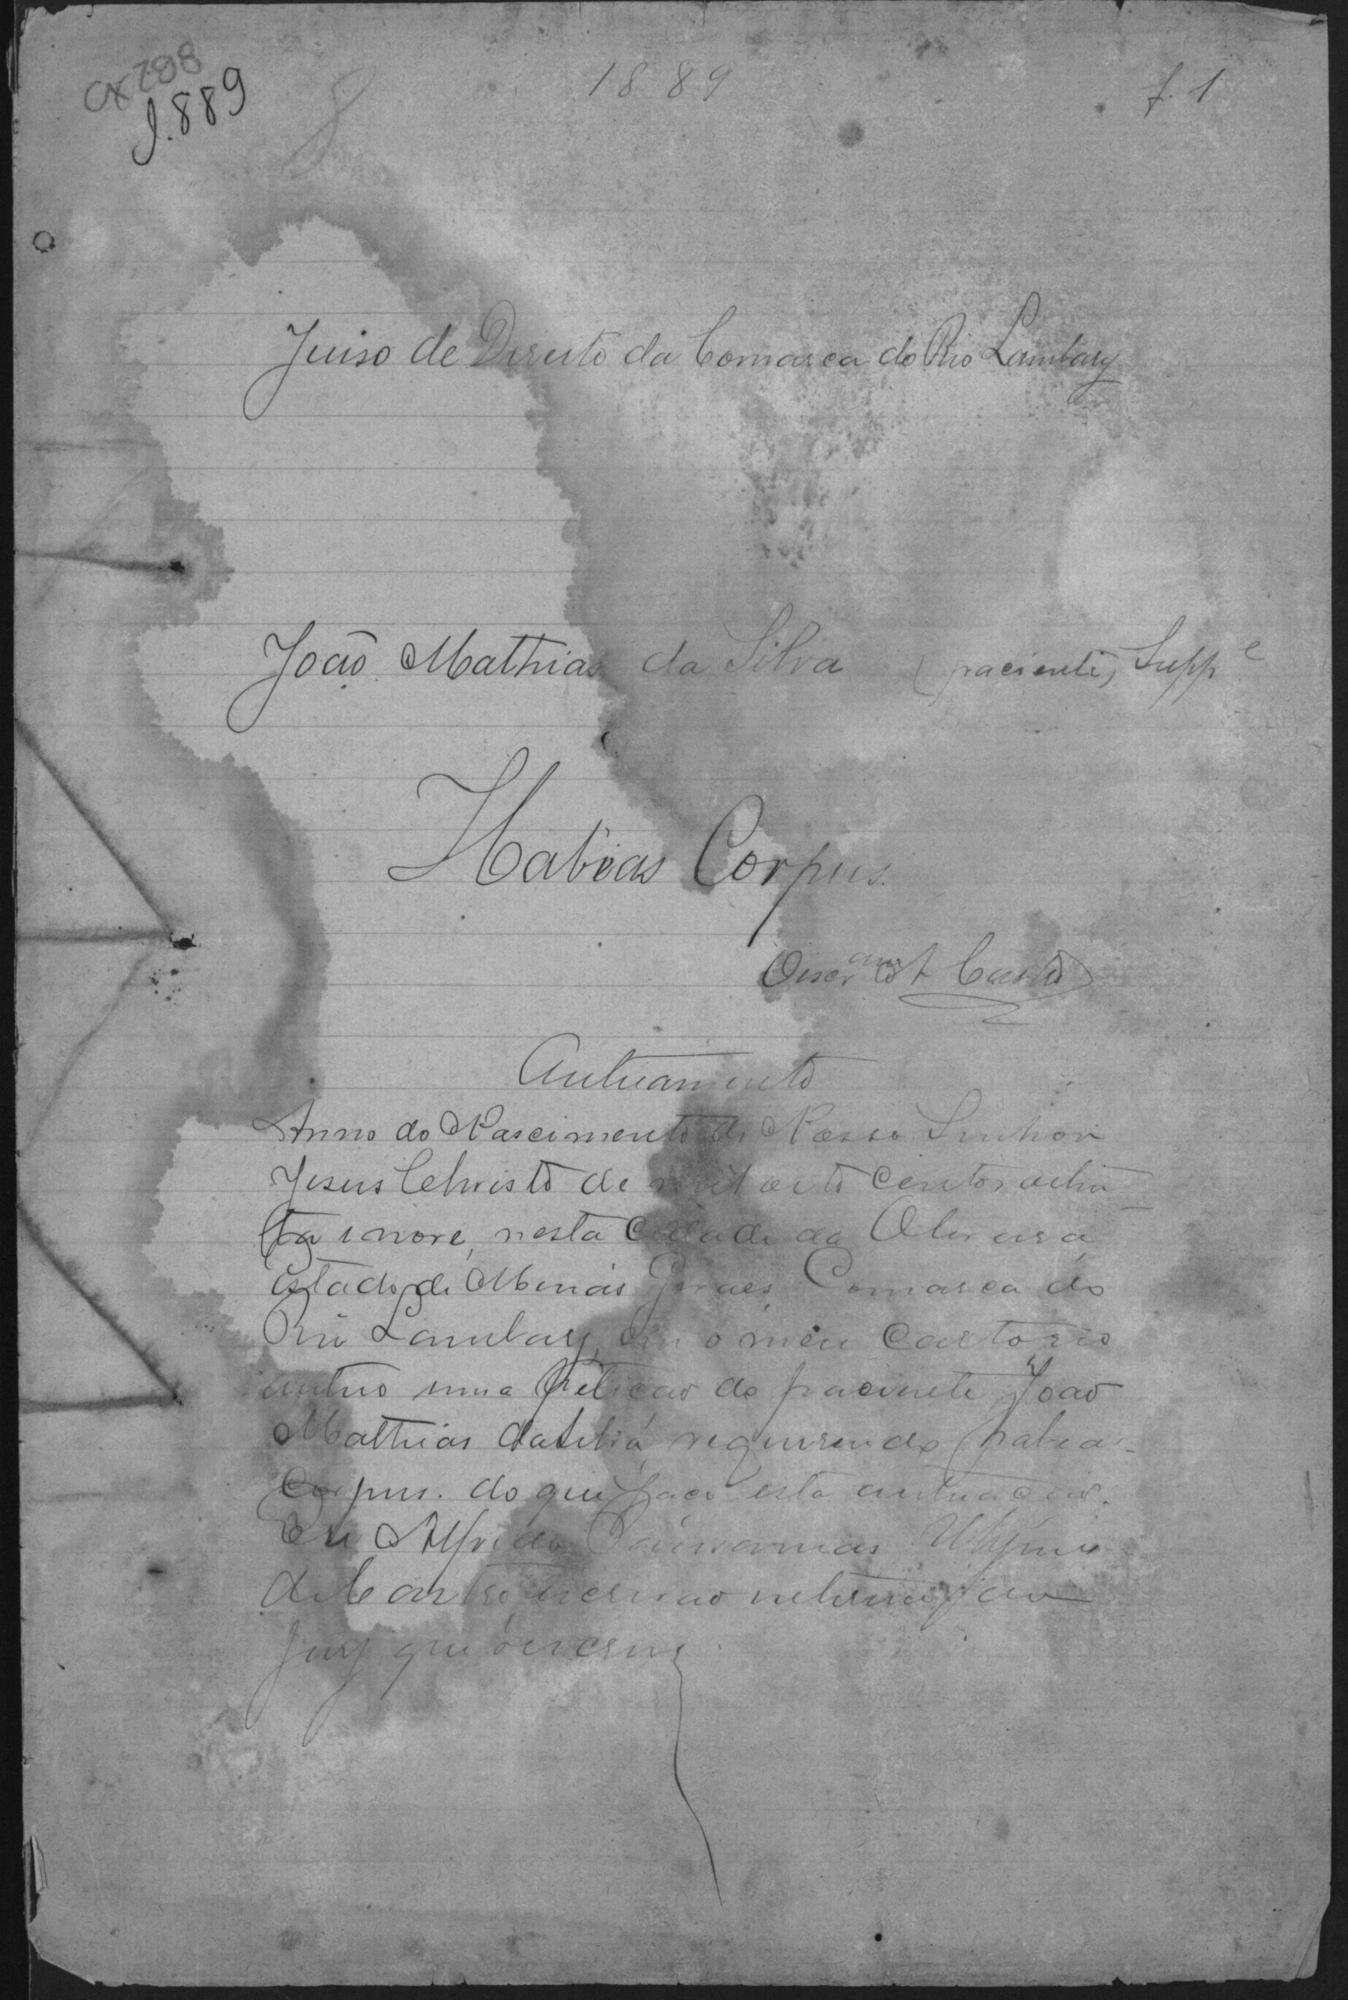 CX 798
1.889
1889
f. 1
Juiso de Direito da Comarca do Rio Lambary
João Mathias da Silva (paciente) Supp^e
Habeas Corpus.
Castro
Autuamento
Anno do Nascimento de Nosso Senhor
Jesus Christo de mil oito centos oiten
ta e nove, nesta cidade da Oliveira
Estado de Minas Geraes Comarca do
Rio Lambary, em o meu cartorio
autuo uma petição do paciente João
Mathias da Silva, requerendo habeas
Corpus. do que faço esta autuação.
Eu Alfredo
de Castro escrivão interino do
Jury que o escrevi